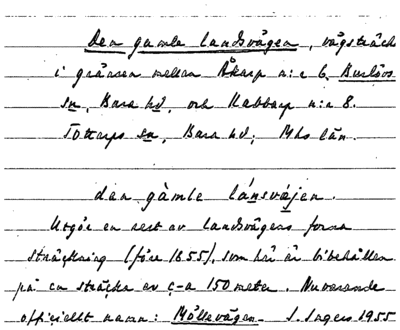 Den gamle landsvägen, vägsträck
i gränsen mellan Åkarp n:r 6, Burlövs
sn, Bara hd, och Kabbarp n:r 8.
Tottarps sn, Bara hd; Mhs län.
den gàmle lánsväjen.
Utgör en rest av landsvägens forna
sträckning (före 1855), som här är bibehållen
på en sträcka av c-a 150 meter. Nuvarande
officiellt namn: Möllevägen. S. Ingers 1955